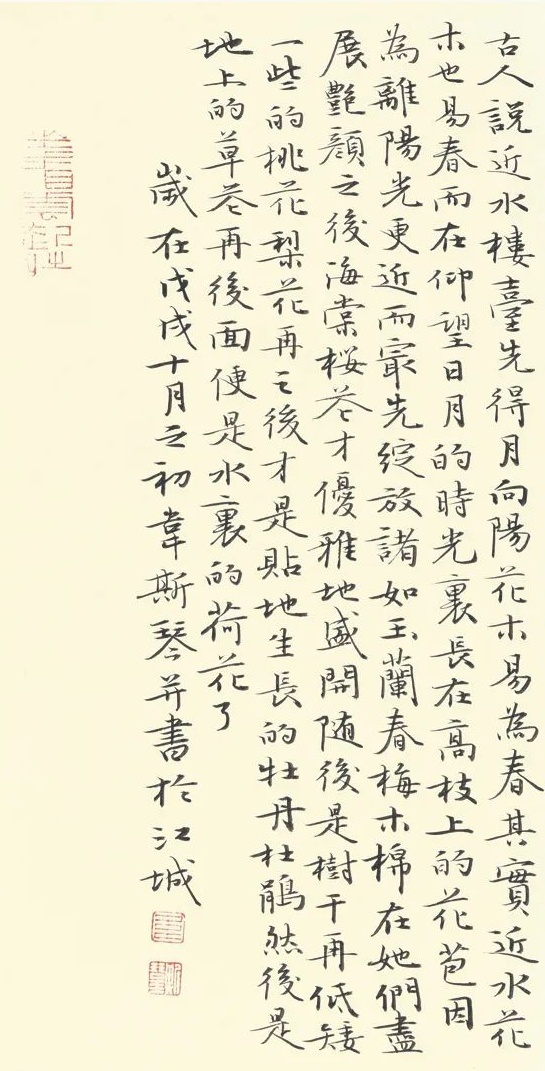 古人説近水樓臺先得月向陽花木易為春其實近水花
木也易春而在仰望日月的時光裏長在高枝上的花苞因
為離陽光更近而寂先綻放諸如玉蘭春梅木棉在她們盡
展艷顔之後海棠桜花才優雅地盛開随後是樹干再低矮
一些的桃花梨花再之後才是貼地生長的牡丹杜鵑然後是
地上的草花再後面便是水裏的荷花了
歲在戊戌十月之初韋斯琴并書於江城